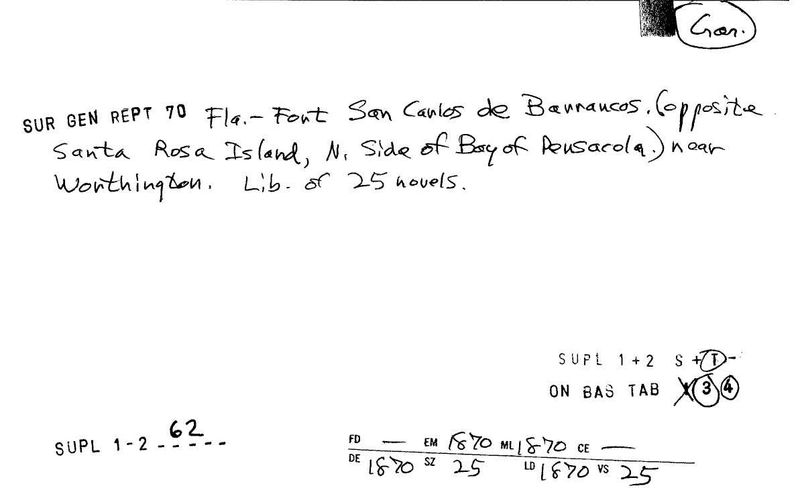 Gar.
SUR GEN REPT 70 Fla.- Fort San Carlos de Barrancos. (opposite
Santa Rosa Island, N. Side of Bay of Pensacola.) near
Worthington. Lib. of 25 novels.
SUPL 1+2 S + T -
ON BAS TAB 1 3 4
SUPL 1-2 62
FD — EM 1870 ML 1870 CE —
DE 1870 SZ 25 LD 1870 VS 25